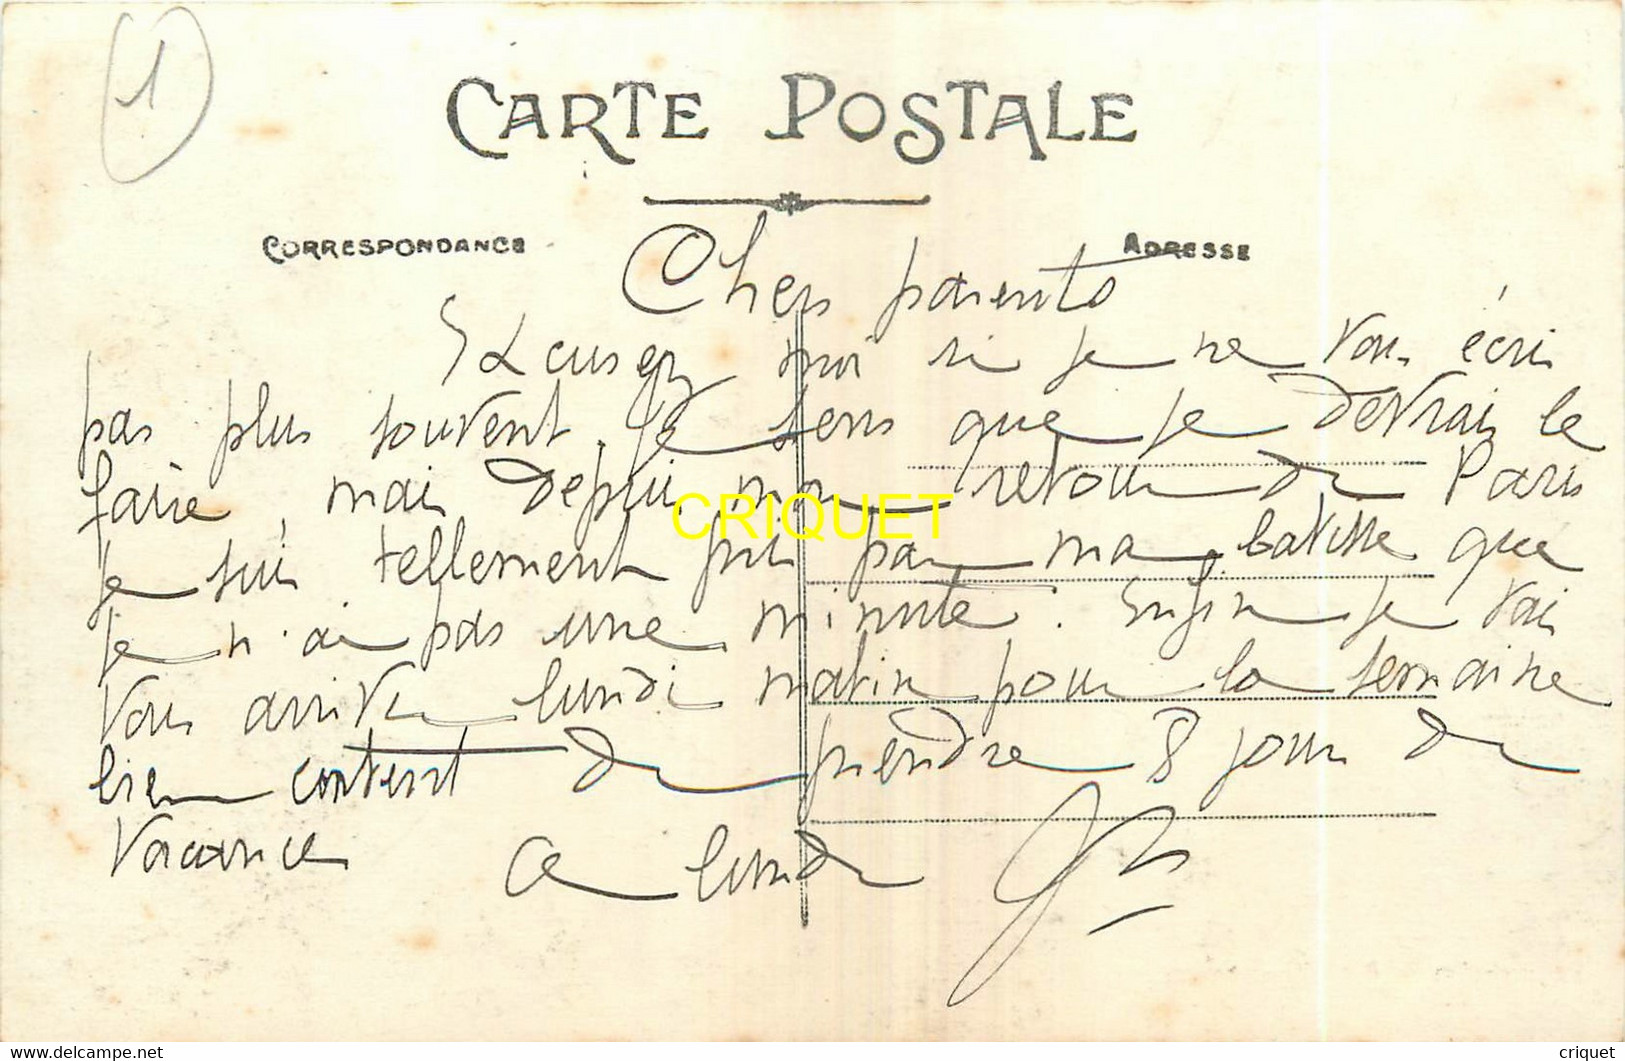 1
CARTE POSTALE
CORRESPONDANCE
ADRESSE
Chers parents
Excusez moi si je ne vous écri
pas plus souvent, je sens que je devrais le
faire, mais depuis mon retour de Paris
je suis tellement pris par ma batisse que
je n'ai pas une minute. Enfin je vais
vous arriver lundi matin pour la semaine
bien content de prendre 8 jours de
vacances
A lundi
CRIQUET
www.delcampe.net
criquet